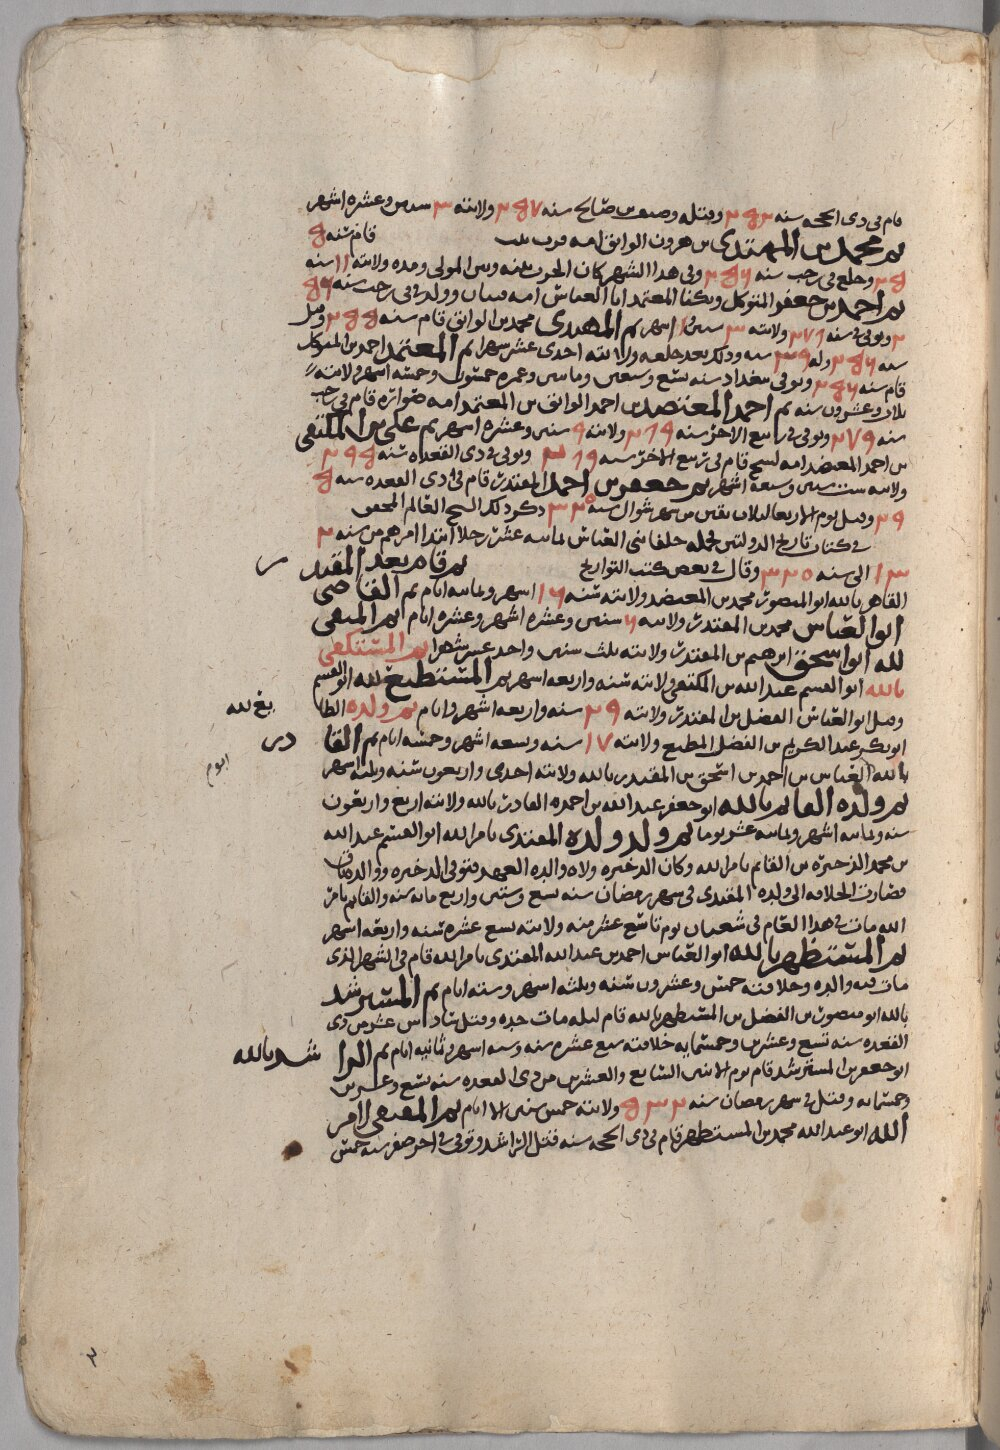 قام في ذي الحجه سنه ٢٥٢ وقتله وصيف بن صالح سنه ٢٥٧ ولايته ٣ سنين وعشره اشهر
ثم محمد بن المهتدي بن هرون الواثق امه قرب قام سنه ٥
٢٥ وخلع في رجب سنه ٢٥٦ وفي هذا الشهر كان الحرب بينه وبين الموالي ومده ولايته ١١ سنه
ثم احمد بن جعفر المتوكل ويكنا المعتمد ابا العباس امه فتيان وولد في رجب سنه ٥٦
٢ وتوفي في سنه ٢٧٩ ولايته ٣ سنين و اشهر ثم المهتدي محمد بن الواثق قام سنه ٢٥٥ وقتل
سنه ٢٥٦ وله ٣٩ سنه وذلك بعد خلعه ولايته احدى عشر شهرا ثم المعتمد احمد بن المتوكل
قام سنه ٢٥٦ وتوفي ببغداد سنه تسع وسبعين ومايتين وعمره خمسون وخمسه اشهر ولايته
ثلاث وعشرون سنه ثم احمد المعتضد بن احمد الواثق بن المعتمد امه ضواره قام في رجب
سنه ٢٧٩ وتوفي في ربيع الاخر سنه ٢٨٩ ولايته ٩ سنين وعشره اشهر ثم علي بن المكتفي
بن احمد المعتضد امه قام في ربيع الاخر سنه ٢٨٩ وتوفي في ذي القعده سنه ٢٩٥
ولايته ست سنين وسبعه اشهر ثم جعفر بن احمد المقتدر قام في ذي القعده سنه ٥
٢٩ وقتل يوم الاربعا لثلاث بقين من شهر شوال سنه ٣٢٠ ذكر ذلك الشيخ العالم المحقق
في كتاب تاريخ الدولتين فجمله خلفا بني العباس ثمانيه عشر رجلا ابتدا امرهم من سنه ٢
١٣ الى سنه ٣٢٥ وقال في بعض كتب التواريخ ثم قام بعد المقتدر
القاهر بالله ابو المنصور محمد بن المعتضد ولايته سنه ١٦ اشهر وثمانيه ايام ثم القاضي
ابو العباس محمد بن المقتدر ولايته ٦ سنين وعشره اشهر وعشره ايام ثم المتقي
لله ابو اسحق ابرهيم بن المقتدر ولايته ثلث سنين واحد عشر شهرا ثم المستكفي
بالله ابو القسم عبد الله بن المكتفي ولايته سنه واربعه اشهر ثم المستطيع لله ابو القسم
وقيل ابو العباس الفضل بن المقتدر ولايته ٢٩ سنه واربعه اشهر وايام ثم ولده الطايع لله
ابو بكر عبد الكريم بن الفضل المطيع ولايته ١٧ سنه وتسعه اشهر وخمسه ايام ثم القادر
بالله ابو العباس بن احمد بن اسحق بن المقتدر بالله ولايته احدى واربعون سنه وثلثه اشهر
ثم ولده القايم بالله ابو جعفر عبد الله بن احمده القادر بالله ولايته اربع واربعون
سنه وثمانيه اشهر وثمانيه عشر يوما ثم ولد ولده المقتدي بامر الله ابو القسم عبد الله
بن محمد الذخيره بن القايم بامر الله وكان الذخيره ولاه والده العهد فتوفي الذخيره ووالده باق
فصارت الخلافه الى ولده المقتدي في شهر رمضان سنه سبع وستين واربع مايه سنه والقايم بامر
الله مات في هذا العام في شعبان يوم تاسع عشر منه ولايته تسع عشره سنه واربعه اشهر
ثم المستظهر بالله ابو العباس احمد بن عبد الله المقتدي بامر الله قام في الشهر الذي
مات فيه والده وخلافته خمس وعشرون سنه وثلثه اشهر وسته ايام ثم المسترشد
بالله ابو منصور بن الفضل بن المستظهر بالله قام ليله مات جده وقتل سادس عشر من ذي
القعده سنه تسع وعشرين وخمسمايه خلافته سبع عشره سنه وسته اشهر وثمانيه ايام ثم الراشد بالله
ابو جعفر بن المسترشد قام يوم الاثنين السابع والعشرين من ذي القعده سنه تسع وعشرين
وخمسمايه وقتل في شهر رمضان سنه ٥٣٢ ولايته خمس سنين الا ايام ثم المقتفي لامر
الله ابو عبد الله محمد بن المستظهر قام في ذي الحجه سنه قتل الراشد وتوفي في اخر صفر سنه خمس
٣